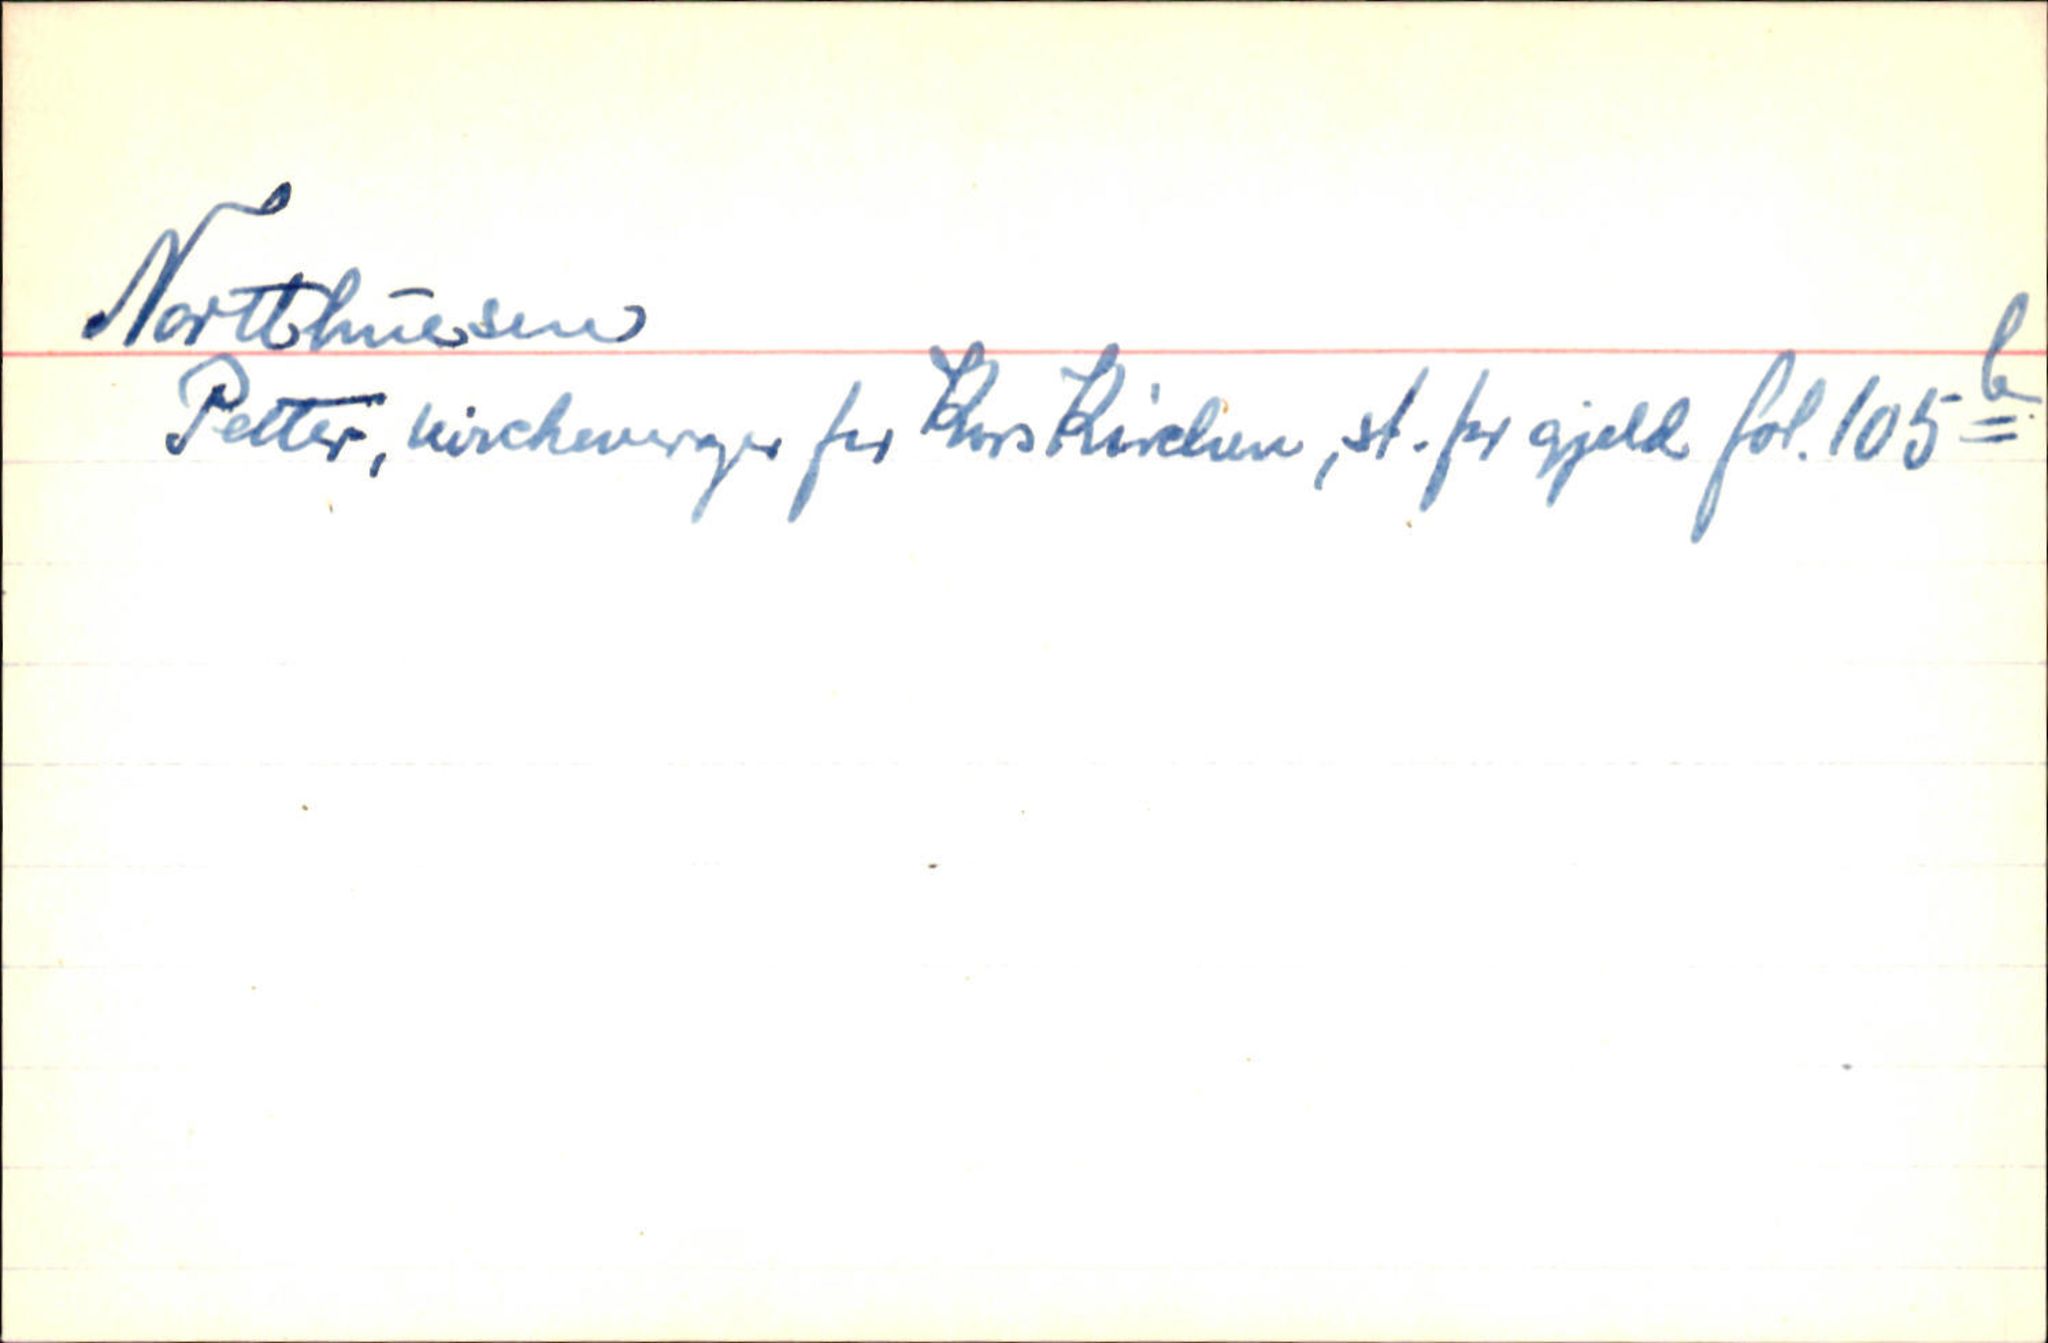 Nortthuesen
Petter, kirchewerger for Kors Kirchen, st. for gjeld fol. 105 b